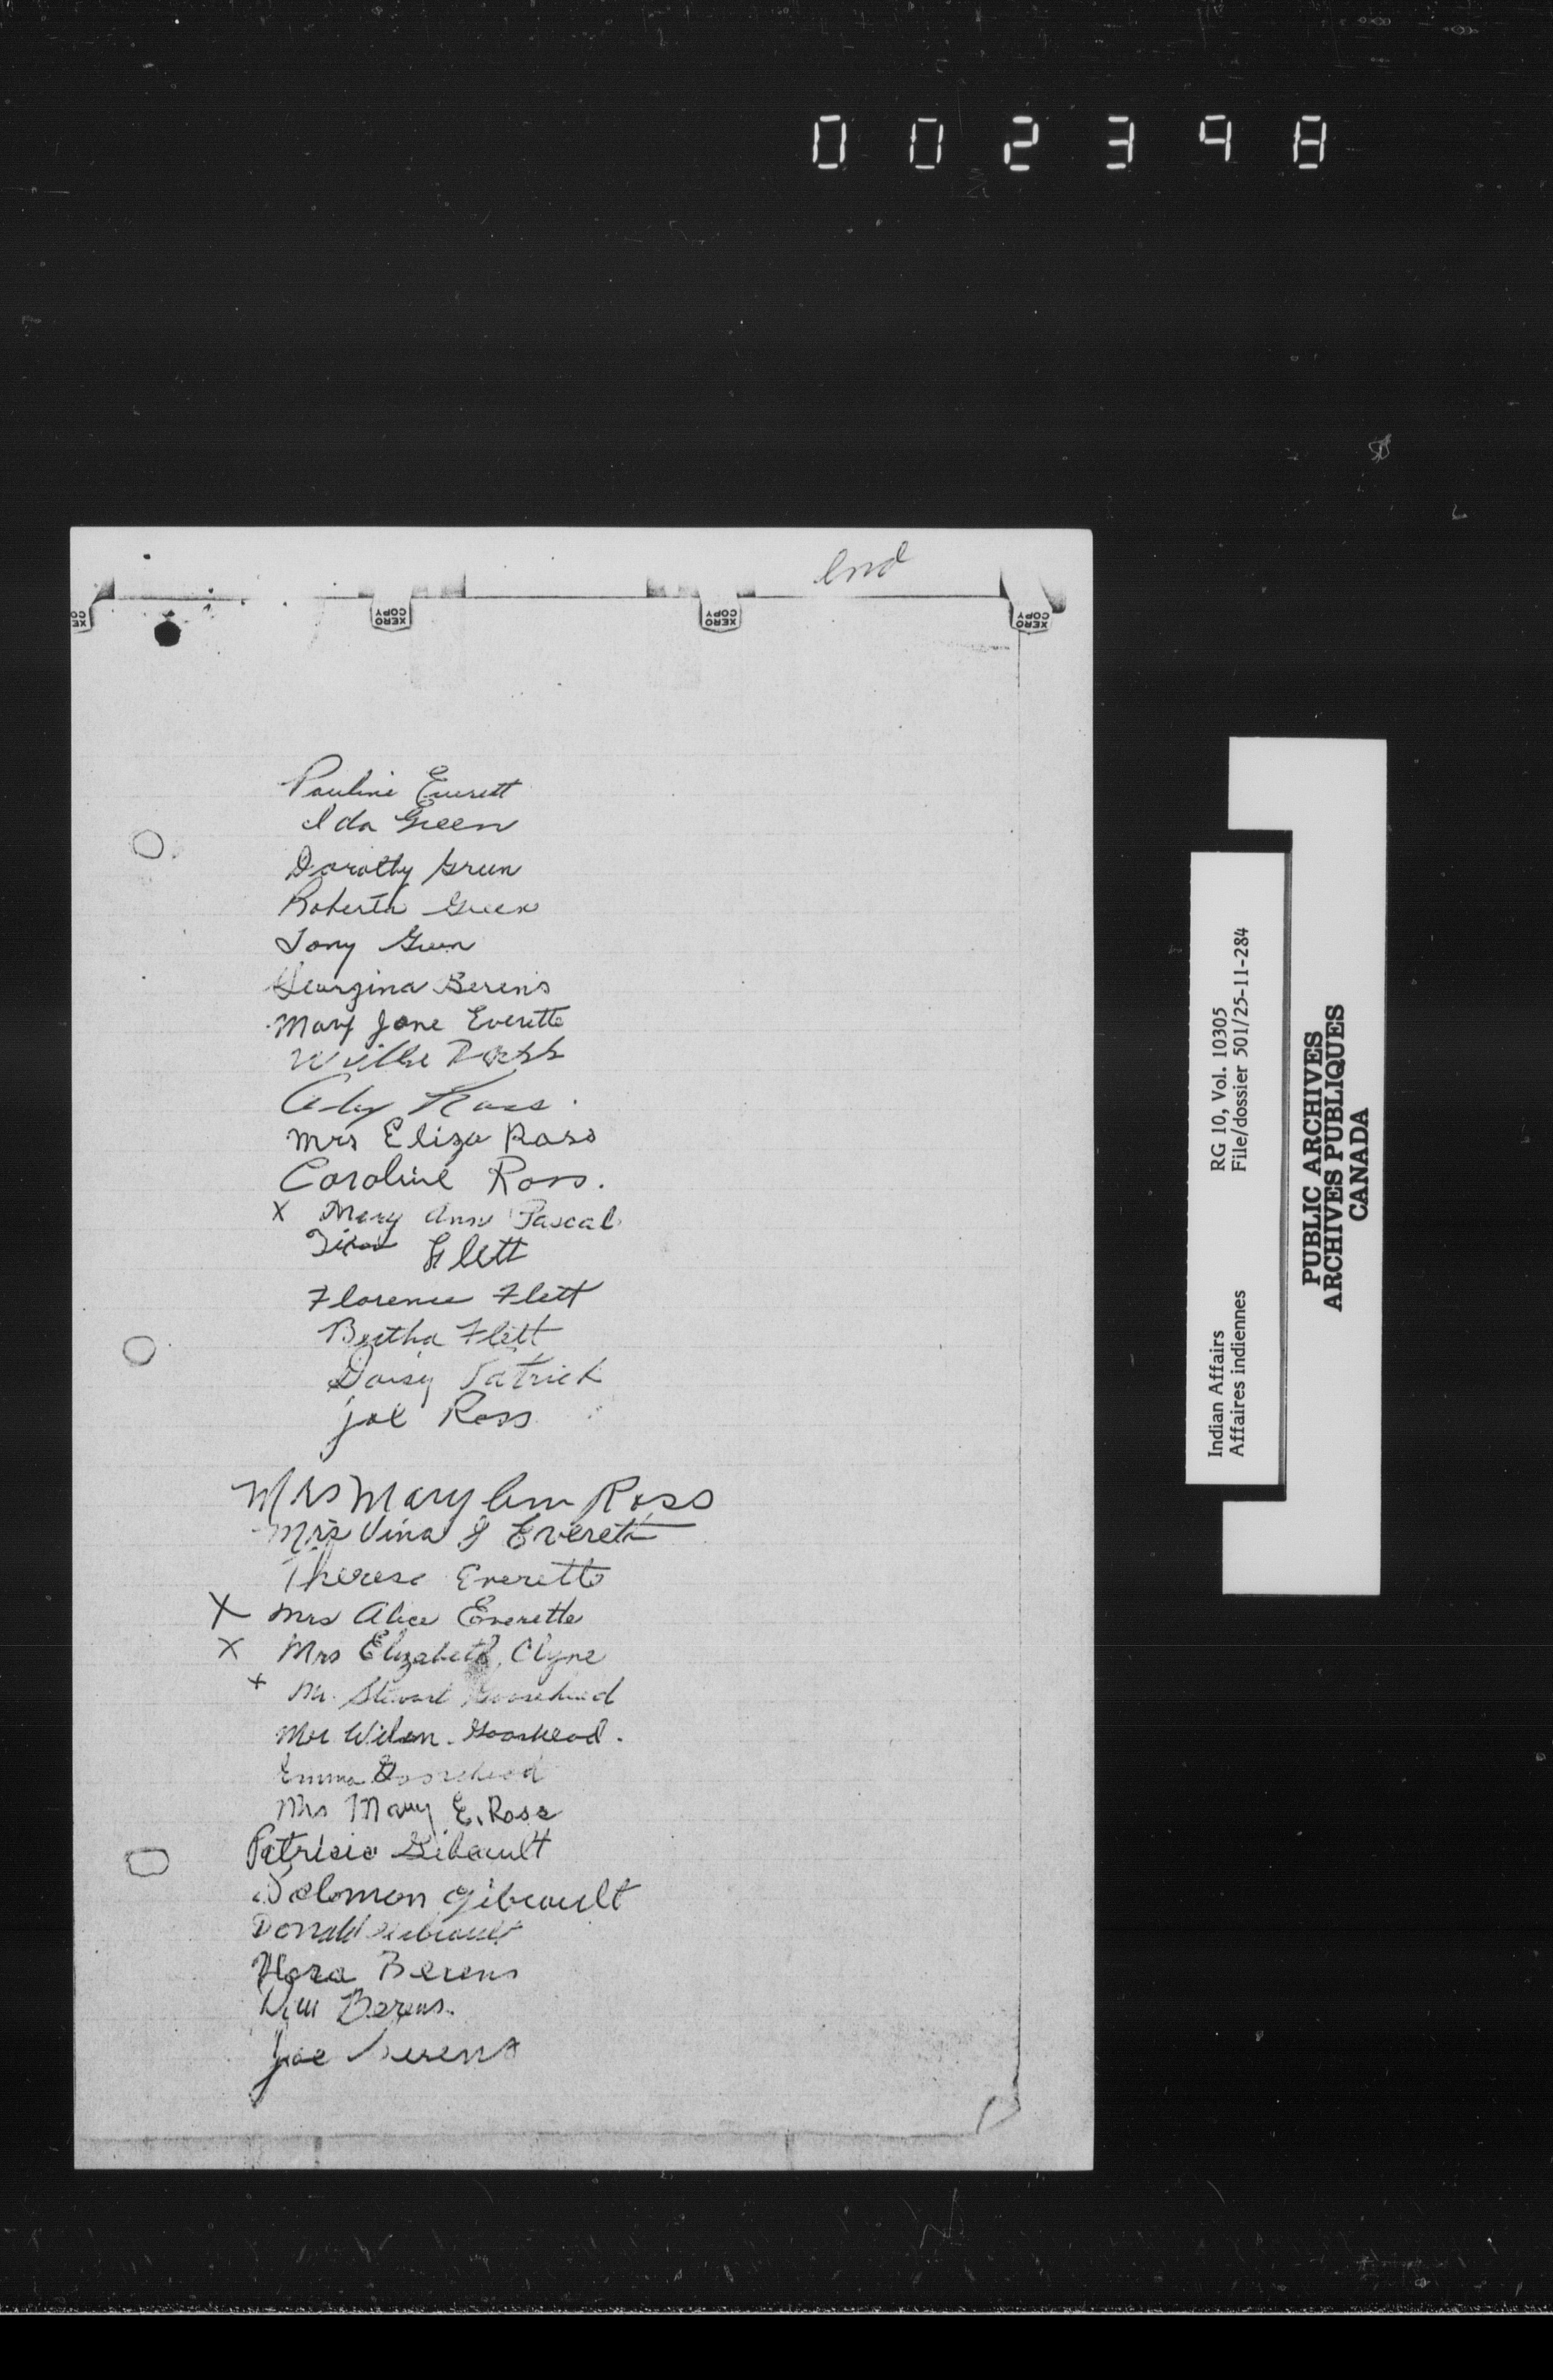 002398
End
XERO COPY
XERO COPY
XERO COPY
Pauline Everett
Ida Green
Dorothy Green
Roberta Green
Tony Green
Georgina Berens
Mary Jane Everette
Willie Ross
Ross.
Mrs Eliza Ross
Caroline Ross.
X Mary Ann Pascal
Flett
Florence Flett
Bertha Flett
Daisy Patrick
Joe Ross
Mrs Mary Ann Ross
Mrs Vina J Everett
Therese Everette
X Mrs Alice Everette
X Mrs Elizabeth Clyne
x Mr. Stewart Goosehead
Goosehead.
Emma Goosehead
Mrs Mary E. Ross
Patricia Gibeault
Solomon Gibeault
Donald Gibeault
Flora Berens
Berens.
Joe Berens
Indian Affairs RG 10, Vol. 10305
Affaires indiennes File/dossier 501/25-11-284
PUBLIC ARCHIVES
ARCHIVES PUBLIQUES
CANADA